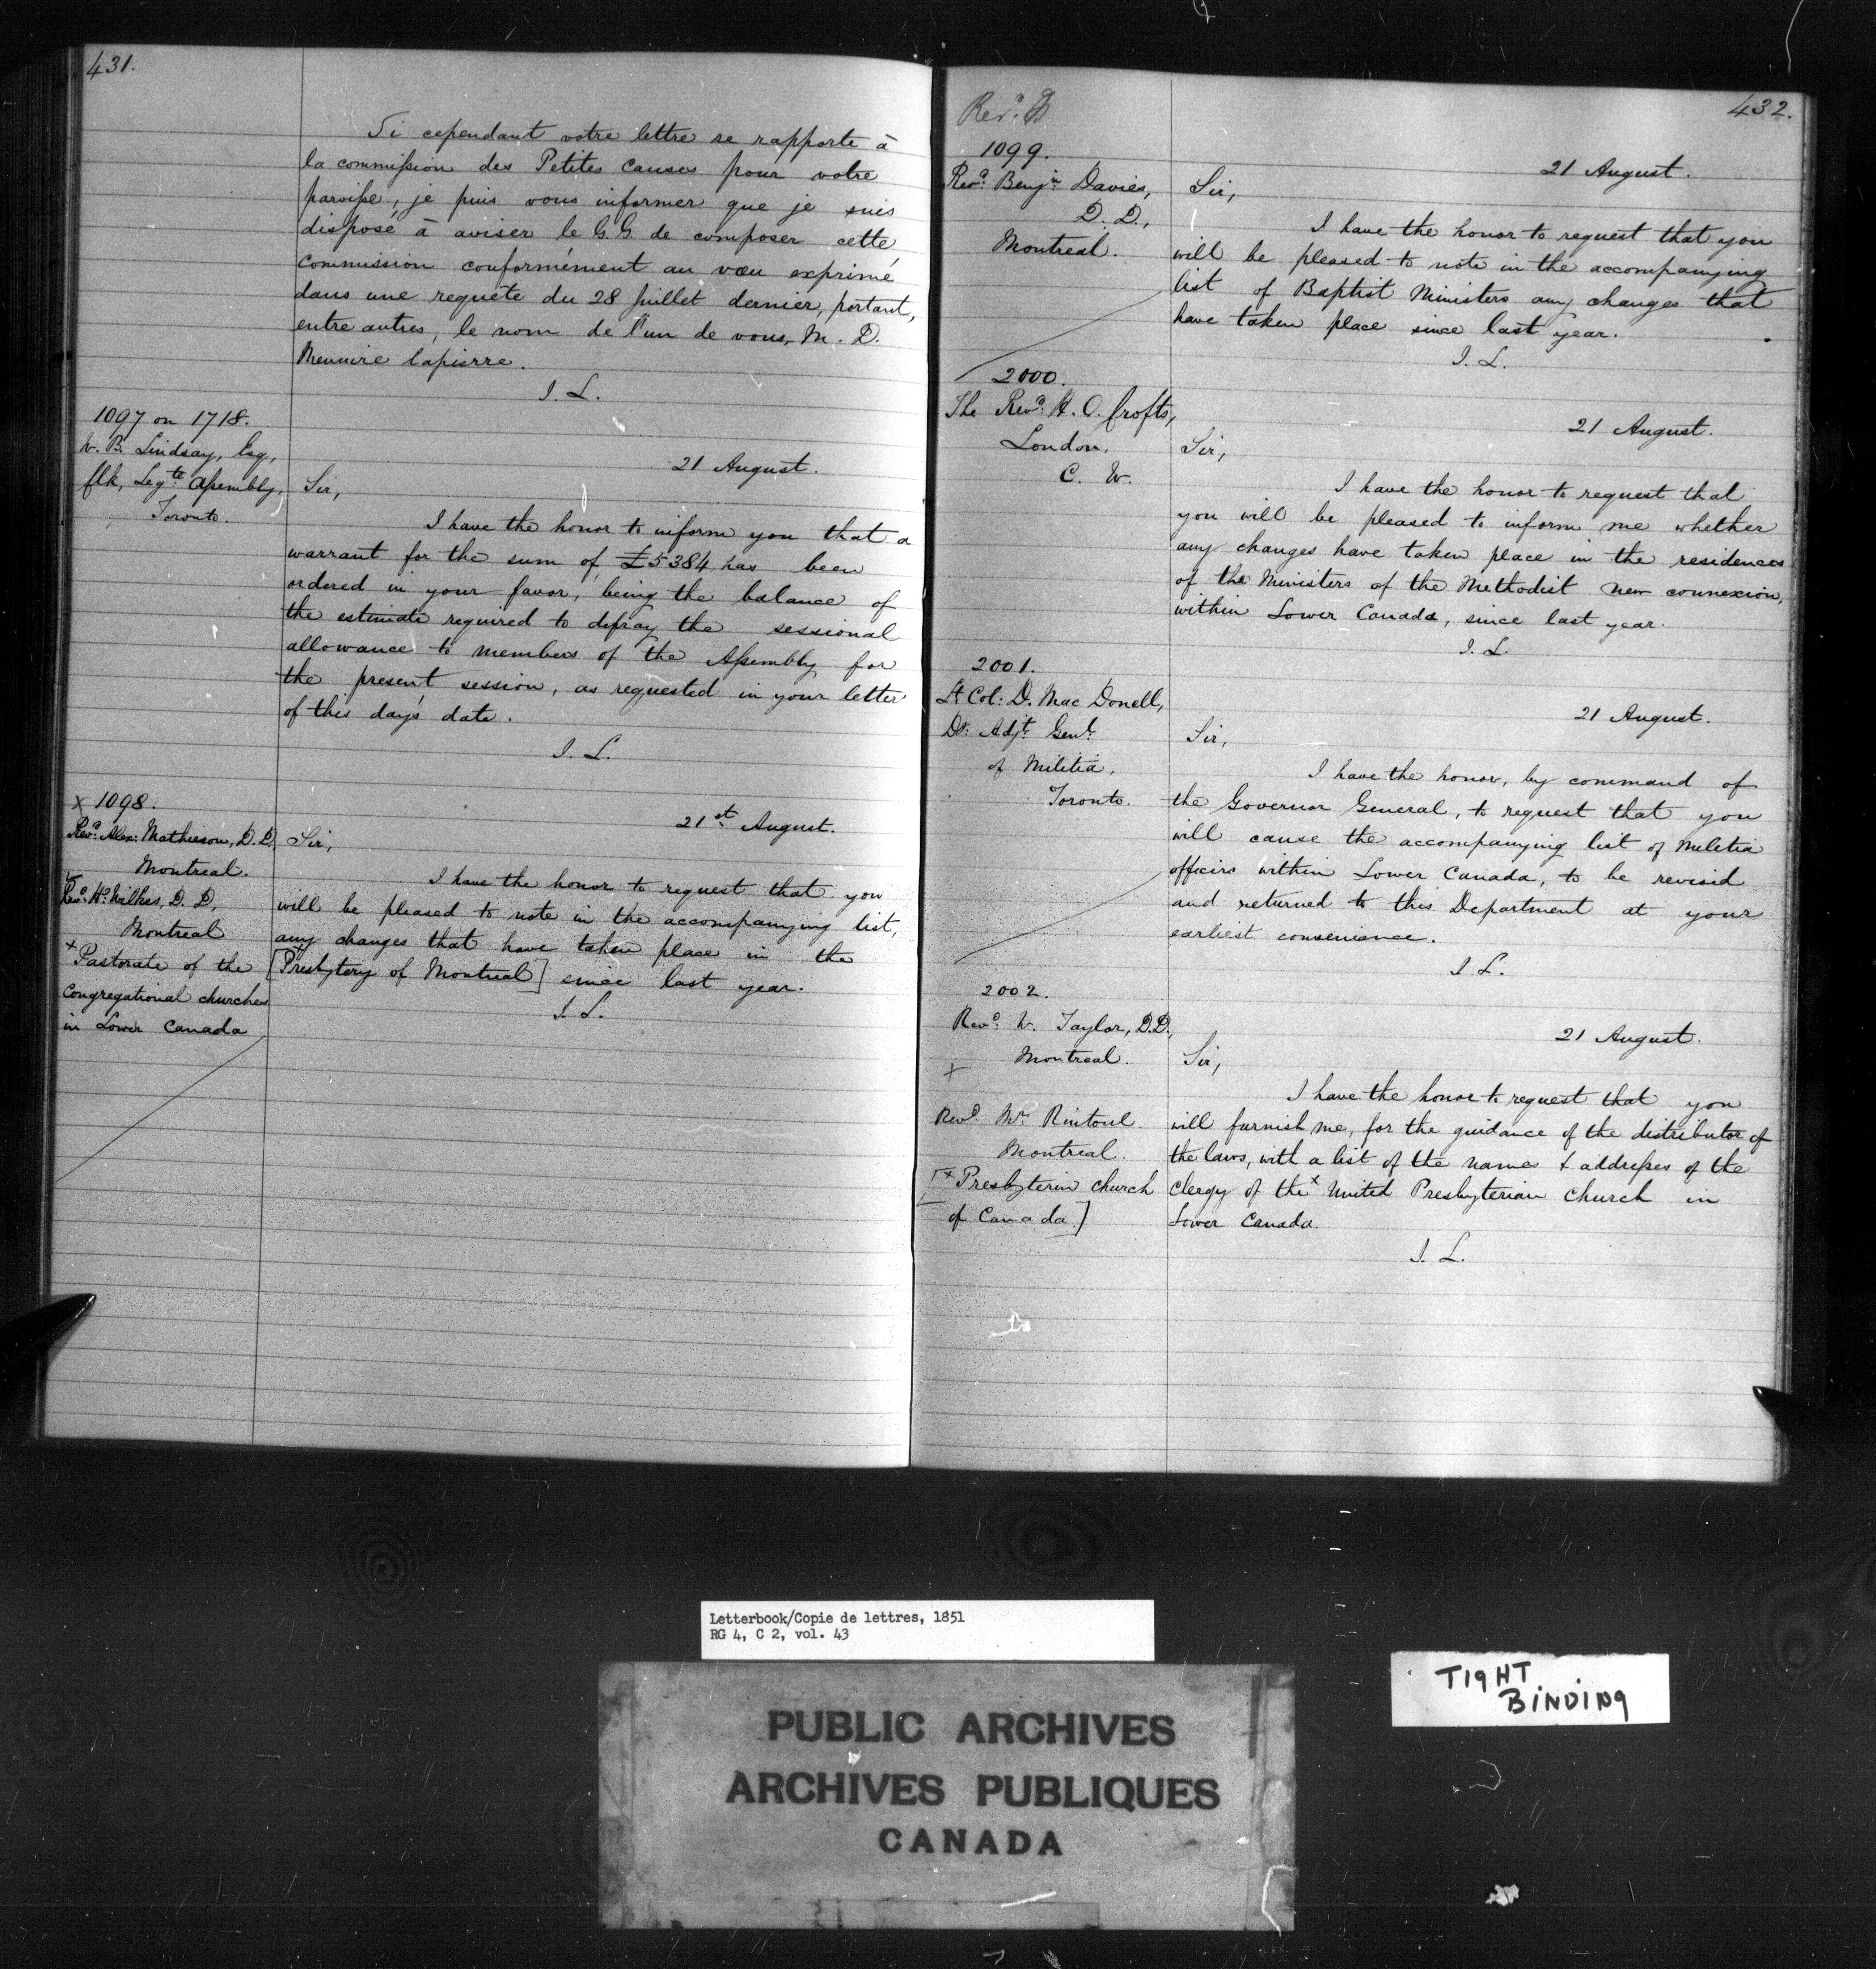 431.
Si cependant votre lettre se rapporte à
la commission des Petites causes pour votre
paroisse, je puis vous informer que je suis
disposé à aviser le G. G. de composer cette
commission conformément au vœu exprimé
dans une requête du 28 Juillet dernier, portant,
entre autres, le nom de l'un de vous, M. D.
Meunire Lapierre.
I. L.
1097 on 1718.
W. B. Lindsay, Esq,
Clk, Legte. Assembly,
Toronto.
21 August.
Sir,
I have the honor to inform you that a
warrant for the sum of £5384 has been
ordered in your favor, being the balance of
the estimate required to defray the sessional
allowance to members of the Assembly for
the present session, as requested in your letter
of this day's date.
I. L.
x 1098.
Revd. Alex: Mathieson, D. D.
Montreal.
Revd. Hy. Wilkes, D. D,
Montreal
x Pastorate of the
Congregational churches
in Lower Canada
21st August.
Sir,
I have the honor to request that you
will be pleased to note in the accompanying list,
any changes that have taken place in the
[Presbytery of Montreal] since last year.
I. L.
432.
Revd.
1099.
Revd. Benjn Davies,
D. D.,
Montreal.
21 August.
Sir,
I have the honor to request that you
will be pleased to note in the accompanying
list of Baptist Ministers any changes that
have taken place since last year.
I. L.
2000.
The Revd. H. O. Crofts,
London,
C. W.
21 August.
Sir,
I have the honor to request that
you will be pleased to inform me whether
any changes have taken place in the residences
of the Ministers of the Methodist new connexion,
within Lower Canada, since last year.
I. L.
2001.
Lt Col: D. Mac Donell,
Dy. Adjt. Genl.
of Militia,
Toronto.
21 August.
Sir,
I have the honor, by command of
the Governor General, to request that you
will cause the accompanying list of Militia
officers within Lower Canada, to be revised
and returned to this Department at your
earliest convenience.
I L.
2002.
Revd. W. Taylor, D.D.,
Montreal.
x
Revd. Mr. Rintoul
Montreal.
[x Presbyterin church
of Canada.]
21 August.
Sir,
I have the honor to request that you
will furnish me, for the guidance of the distributor of
the laws, with a list of the names & addresses of the
Clergy of the x United Presbyterian Church in
Lower Canada.
I. L.
Letterbook/Copie de lettres, 1851
RG 4, C 2, vol. 43
TIGHT
BINDING
PUBLIC ARCHIVES
ARCHIVES PUBLIQUES
CANADA